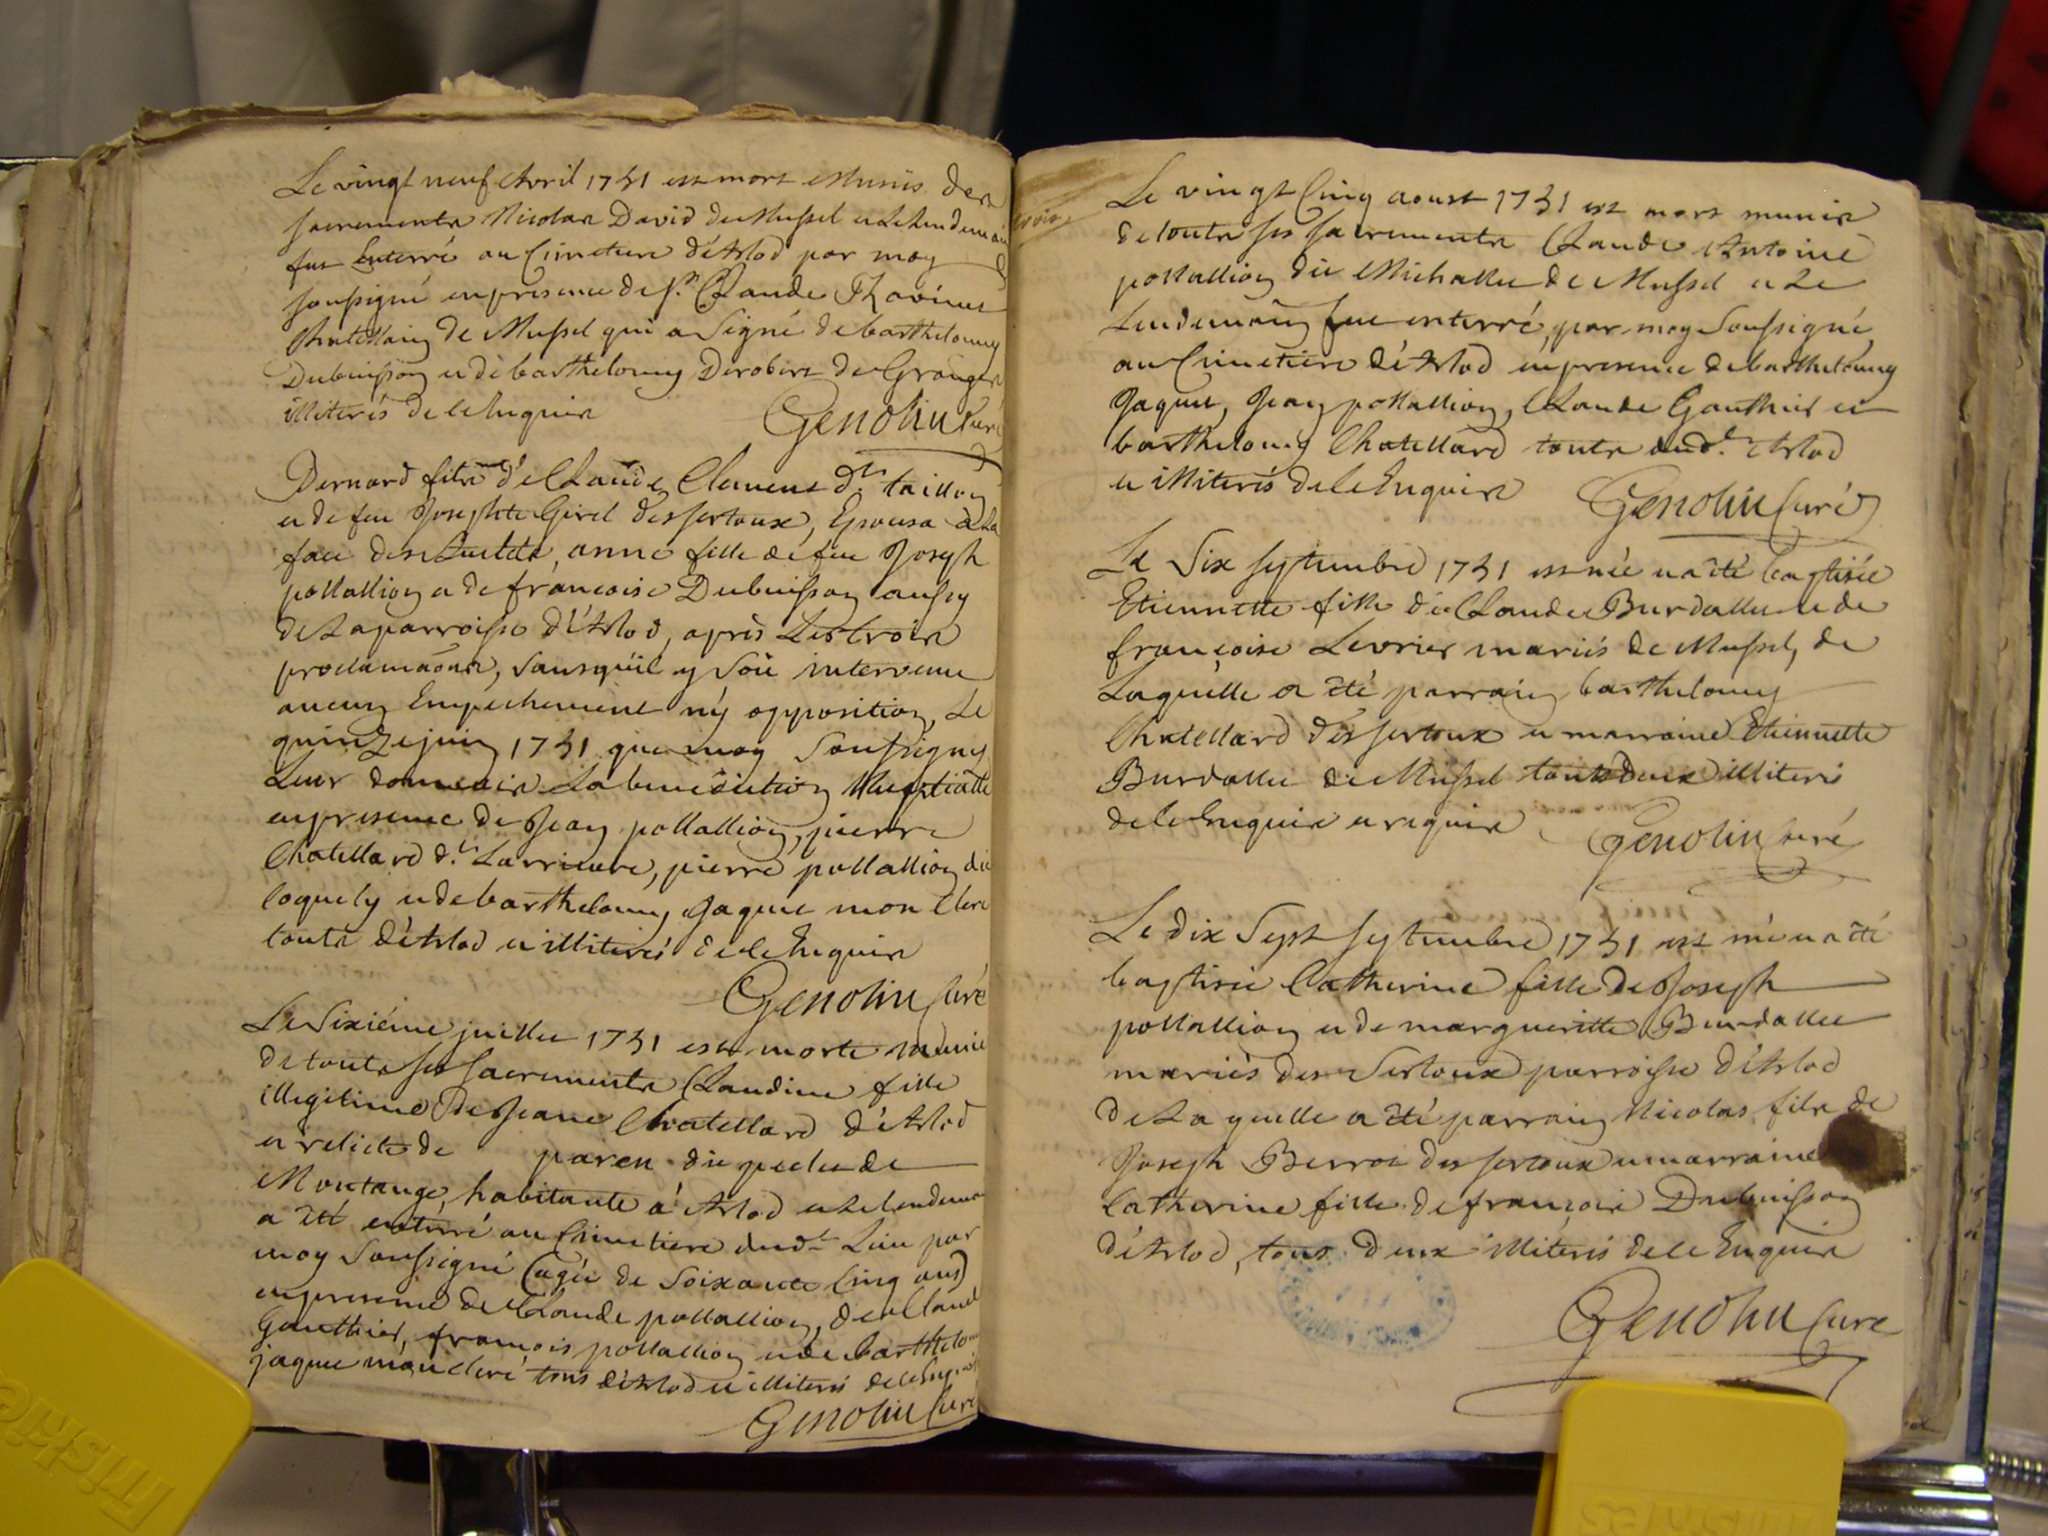 Le vingt neuf Avril 1731 est mort Munis des
sacrements Nicolas David de Mussel et le lendemain
fut Enterré au Cimetiere d'Arlod par moy
soussigné en presence de Sr. Claude Thovinet
Chatellain de Mussel qui a signé de barthelemy
Dubuisson et de barthelemy Derobert de Granges
illiterés de ce Enquis
Genolin Curé
Bernard fils de Claude Clement dt. taillon
et de feu Josephte Girel des sertoux, Epousa à la
face des autels, anne fille de feu Joseph
pollallion et de francoise Dubuisson aussy
de la parroisse d'Arlod, après les trois
proclamaons, sans quil y soit intervenu
aucun Empechement ny opposition, le
quinze juin 1731 que moy soussigné
leur donnois la benediction Nuptialle
en presence de Jean pollallion, pierre
Chatellard dt. Larriere, pierre pollallion dit
loquely et de barthelemy Jaquet mon Clerc
touts d'Arlod et illiterés de ce Enquis
Genolin Curé
Le Sixiéme juillet 1731 est morte munie
de touts ses sacrements Claudine fille
illegitime de Jeane Chatellard d'Arlod
et relicte de paren dit de
Montange, habitante à Arlod et le lendemain
a été enterré au Cimetiere dudt. Lieu par
moy soussigné (agée de soixante cinq ans)
en presence de Claude pollallion, de Claude
Gauthier, francois pollallion et de barthelemy
jaquet mon clerc tous d'Arlod et illiterés de ce Enquis
Genolin Curé
Le vingt Cinq aoust 1731 est mort munis
de touts ses sacrements Claude Antoine
pollallion dit Michallet de Mussel et le
lendemain fut enterré, par moy soussigné
au Cimetiere d'Arlod en presence de barthelemy
Jaquet, Jean pollallion, Claude Gauthier et
barthelemy Chatellard touts dudt. Arlod
et illiterés de ce Enquis
Genolin Curé
Le Six septembre 1731 est née et a été baptisée
Etiennette fille de Claude Burdallet et de
françoise Levrier mariés de Mussel, de
laquelle a été parrain barthelemy
Chatellard des sertoux et marraine Etiennette
Burdallet de Mussel touts deux illiteris
de ce Enquis et requis
Genolin Curé
Le dix Sept septembre 1731 est née et a été
baptisée Catherine fille de Joseph
pollallion et de margueritte Burdallet
mariés des Sertoux parroisse d'Arlod
de la quelle a été parrain Nicolas fils de
Joseph Berrot des sertoux et marraine
Catherine fille de françois Dubuisson
d'Arlod, tous deux illiterés de ce Enquis
Genolin Curé